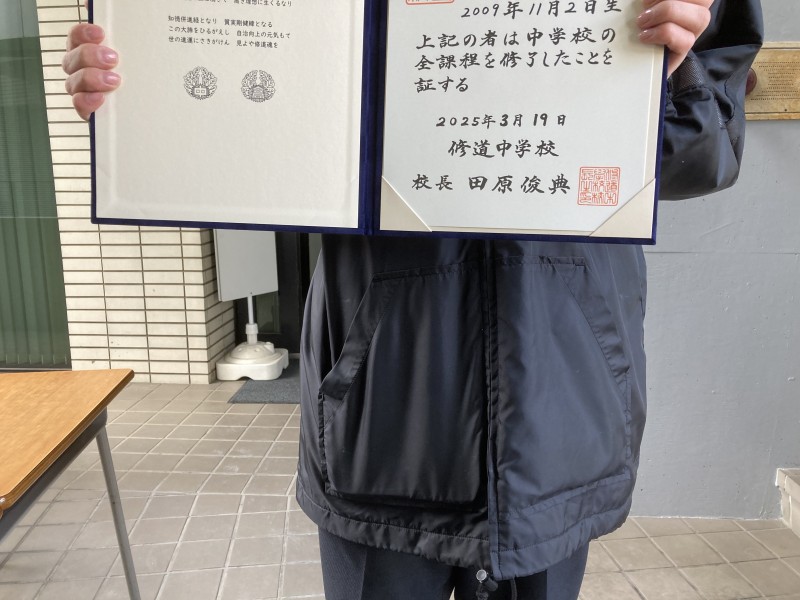 高き理想に生くるなり
知徳併進経となり　質実剛健緯となる
この大旆をひるがえし　自治向上の元気もて
世の進運にさきがけん　見よや修道魂を
2009年11月2日生
上記の者は中学校の
全課程を修了したことを
証する
2025年3月19日
修道中学校
校長 田原俊典